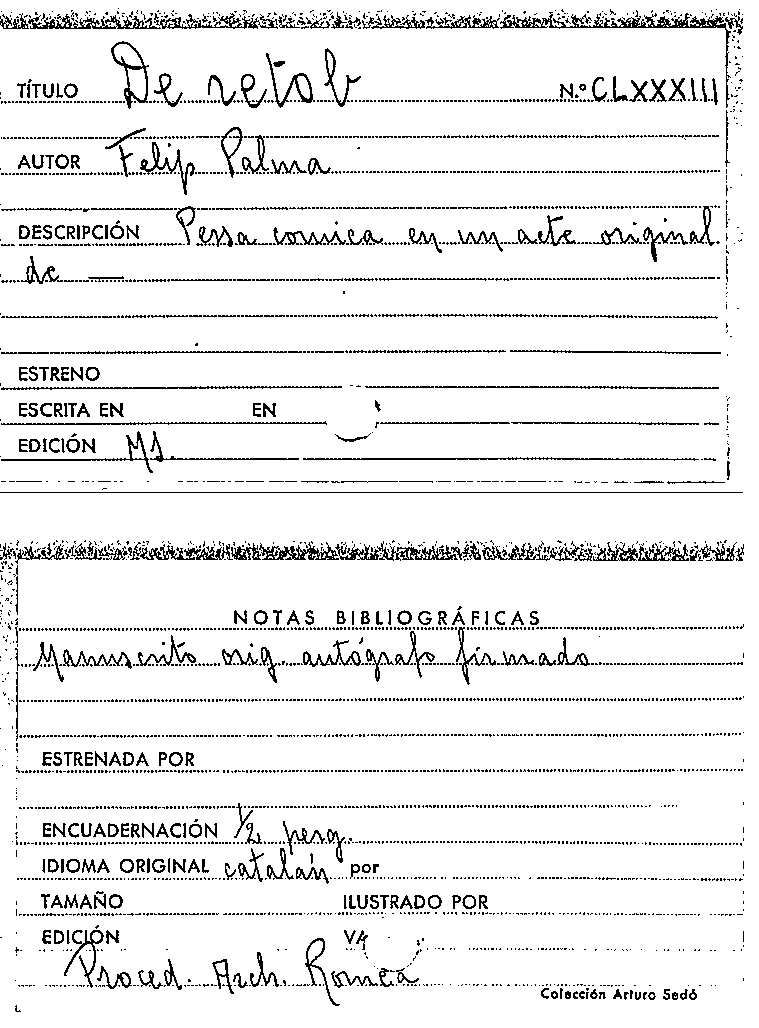 TÍTULO De retob N.º CLXXXIII
AUTOR Felip Palma
DESCRIPCIÓN Pessa comica en un acte original
de —
ESTRENO
ESCRITA EN EN
EDICIÓN Ms.
NOTAS BIBLIOGRÁFICAS
Manuscrito orig. autógrafo firmado
ESTRENADA POR
ENCUADERNACIÓN 1/2 perg.
IDIOMA ORIGINAL catalán por
TAMAÑO ILUSTRADO POR
EDICIÓN
Proced. Arch. Romea
Colección Arturo Sedó